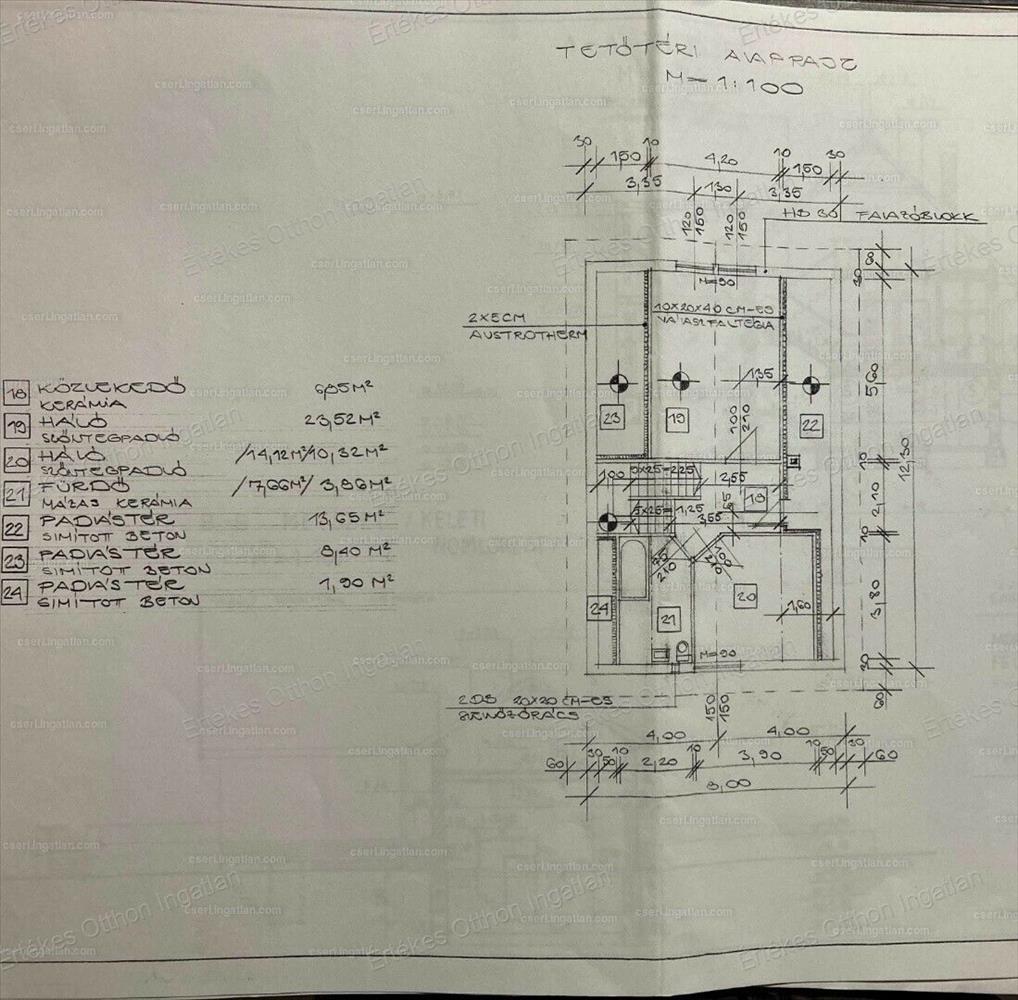 TETŐTÉRI ALAPRAJZ
M=1:100
30 150 10 4,20 10 1,50 30
3,35 130 3,35
120 150 120 150
HB 30 FALAZÓBLOKK
M=90
10X20X40 CM-ES
VÁLASZFALTÉGLA
2X5CM
AUSTROTHERM
135
100 210
23 19 22
60 30 560 10 210 10 3,80 30 60
12,30
18 KÖZLEKEDŐ 6,05 M²
KERÁMIA
19 HÁLÓ 23,52 M²
SZŐNYEGPADLÓ
20 HÁLÓ /14,12M²/10,32M²
SZŐNYEGPADLÓ
21 FÜRDŐ /7,66M²/ 3,96M²
MÁZAS KERÁMIA
22 PADLÁSTÉR 13,65M²
SIMÍTOTT BETON
23 PADLÁSTÉR 8,40 M²
SIMÍTOTT BETON
24 PADLÁSTÉR 1,90 M²
SIMÍTOTT BETON
100 9X25=225 2,55
18
5X25=1,25 3,55
24 21 20 1,60
M=90
2DB 20X20 CM-ES
SZELLŐZŐRÁCS
150 150
4,00 4,00
60 30 50 10 2,20 10 3,90 10 50 30 60
8,00
Értékes Otthon Ingatlan
cserI.ingatlan.com